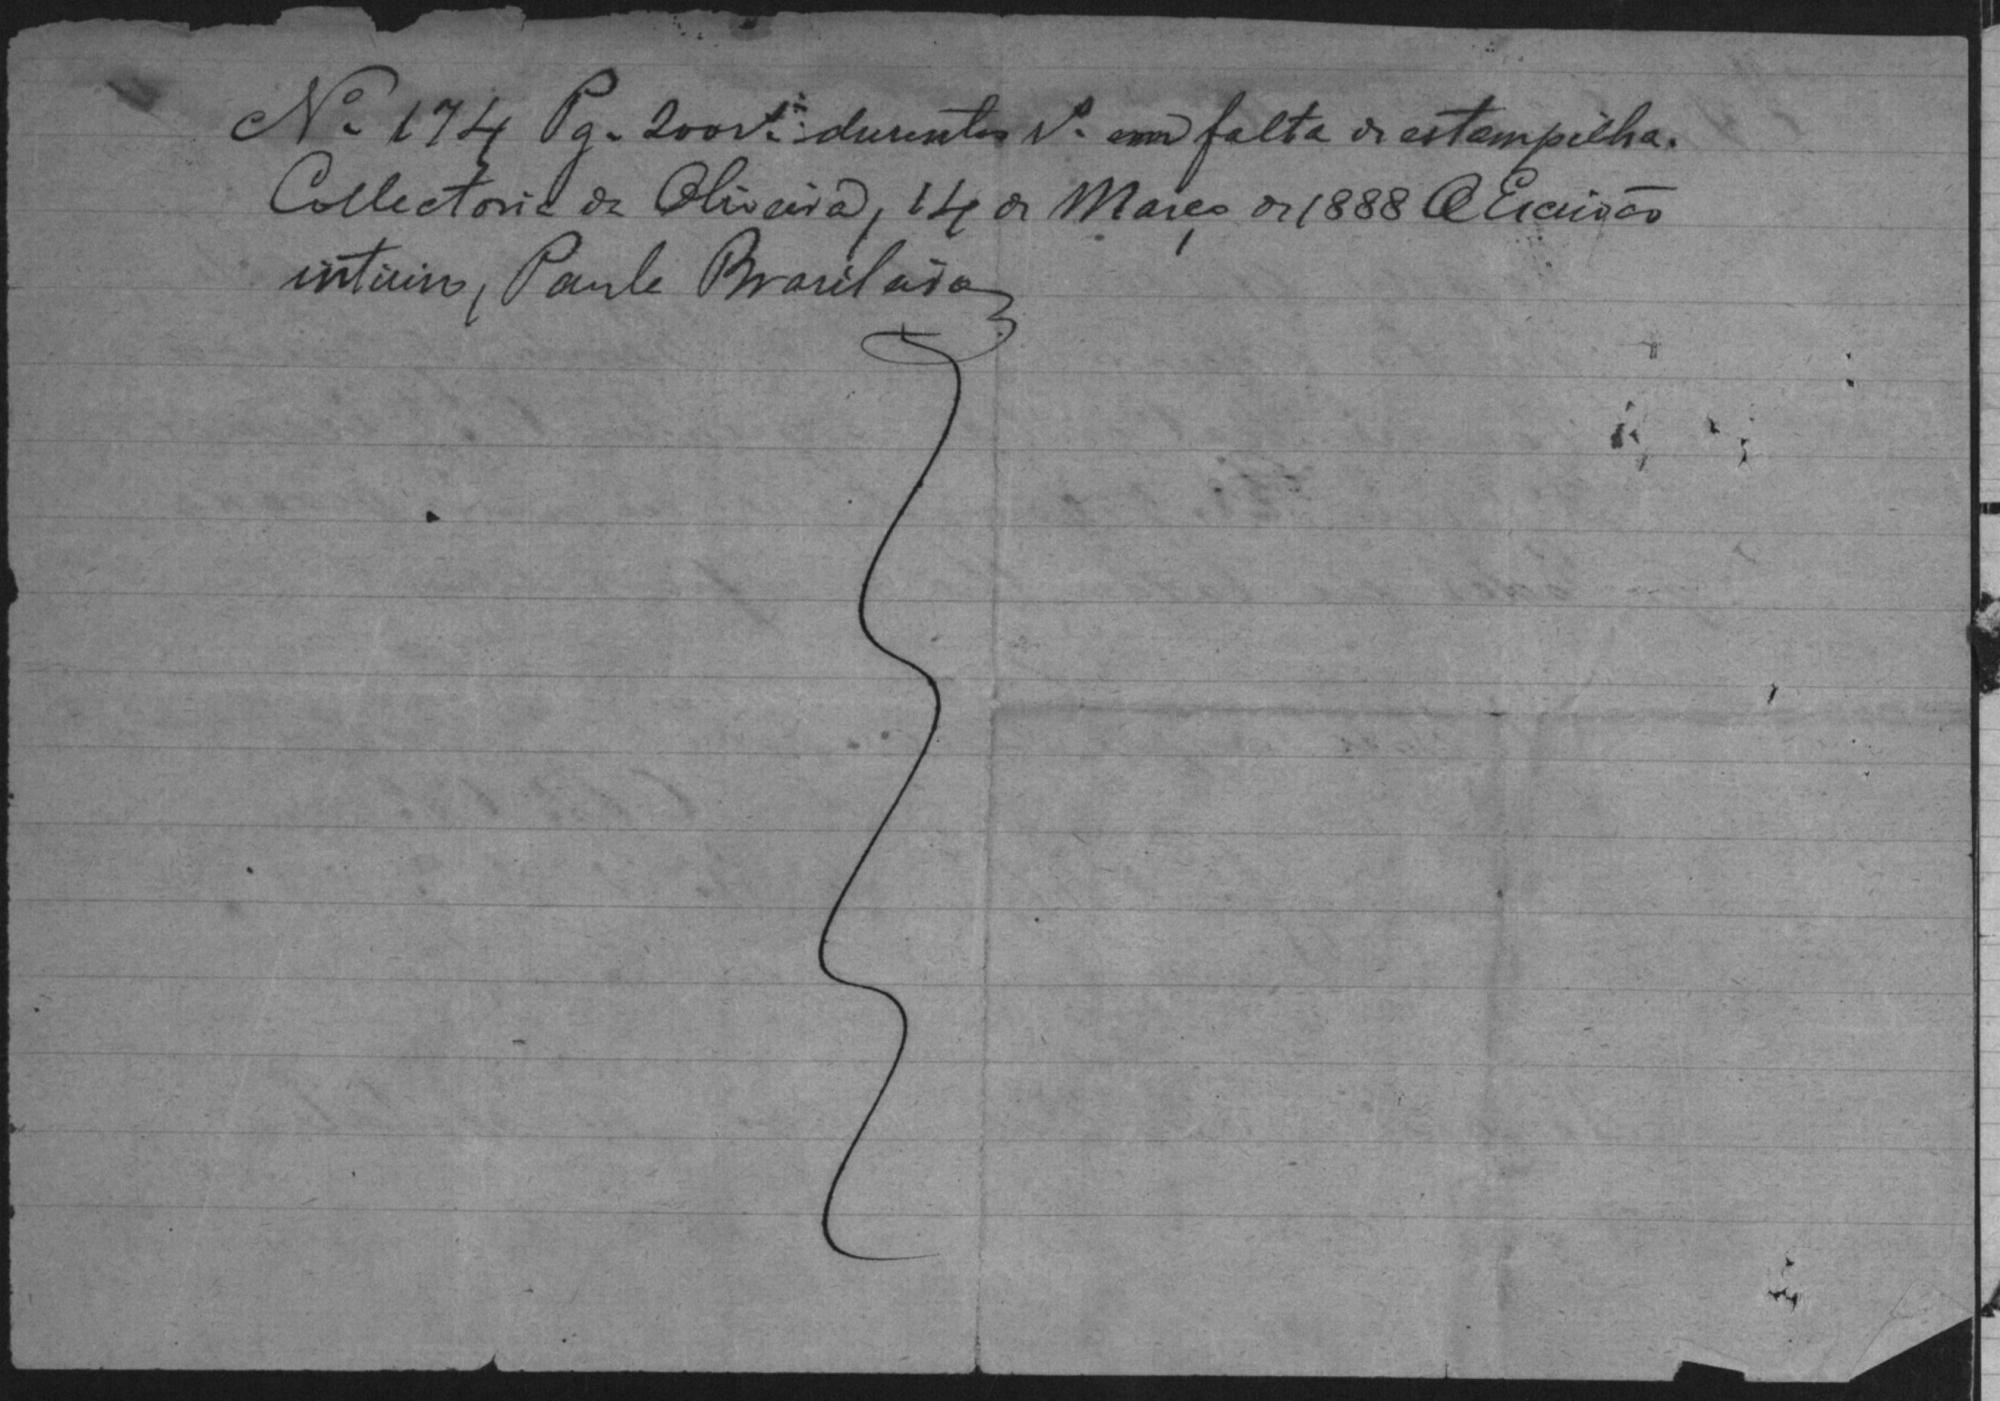 Nº 174 Pg. 200 rs. duzentos rs. em falta de estampilha.
Collectoria de Oliveira, 14 de Março de 1888 O Escrivão
interino, Paulo